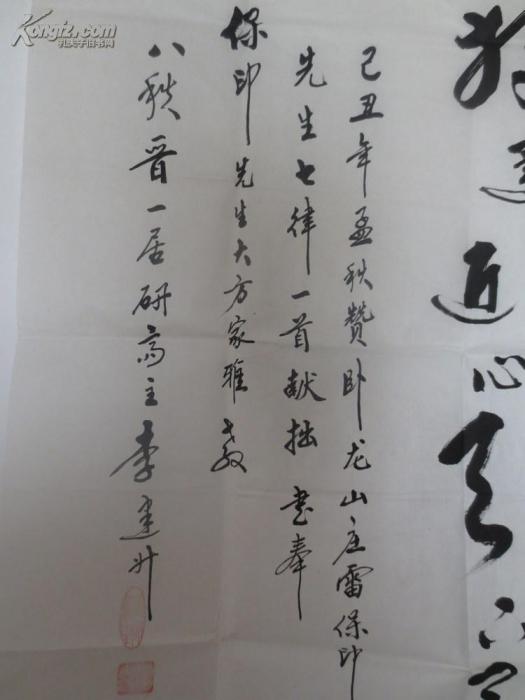 Kongfz.com
孔夫子旧书网
近心天
己丑年孟秋赞卧龙山庄雷保印
先生七律一首献拙 书奉
保印先生大方家雅教
八秩晋一居研斋主李建升